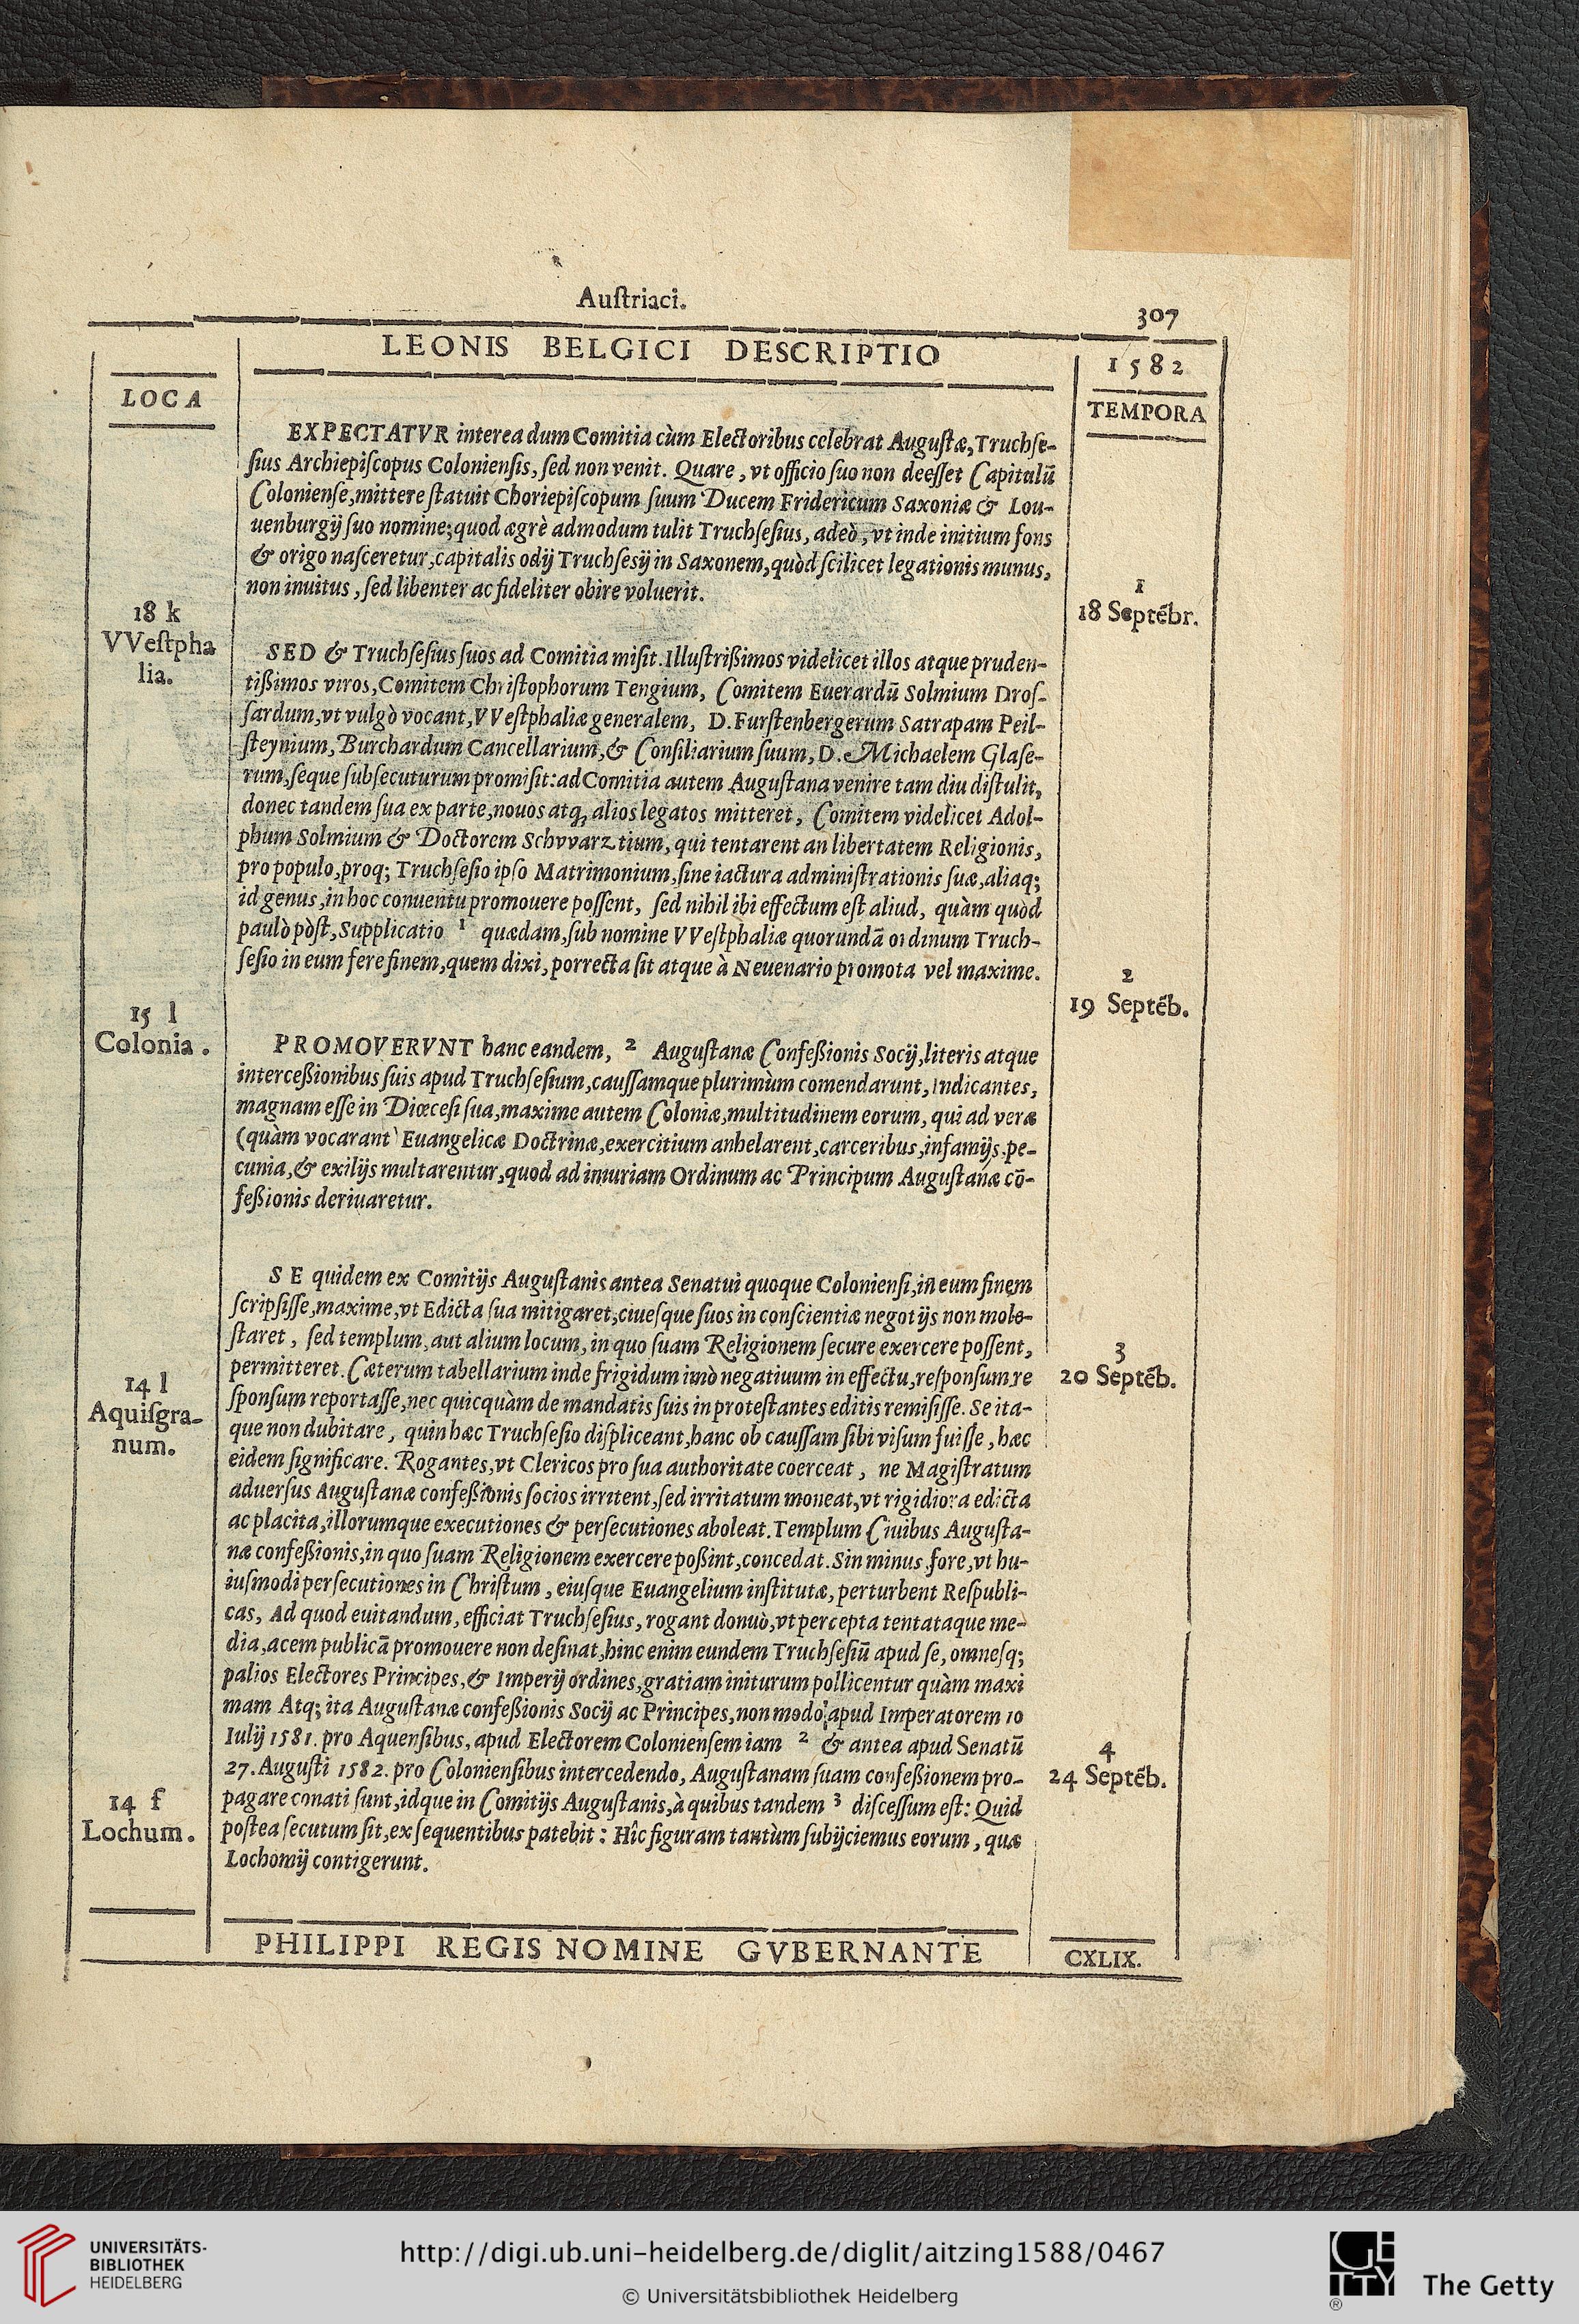 Auſtriaci.
307
LEONIS BELGICI DESCRIPTIO
1582
LOCA
TEMPORA
EXPECTATVR interea dum Comitia cùm Electoribus celebrat Auguſtæ, Truchſe-
ſius Archiepiſcopus Colonienſis, ſed non venit. Quare, vt officio ſuo non deeſſet Capitulū
Colonienſe, mittere ſtatuit Choriepiſcopum ſuum Ducem Fridericum Saxoniæ & Lou-
uenburgij ſuo nomine; quod ægrè admodum tulit Truchſeſius, adeò, vt inde initium fons
& origo naſceretur, capitalis odij Truchſesij in Saxonem, quòd ſcilicet legationis munus,
non inuitus, ſed libenter ac fideliter obire voluerit.
1
18 Septēbr.
18 k
VVeſtpha
lia.
SED & Truchſeſius ſuos ad Comitia miſit. Illuſtrißimos videlicet illos atque pruden-
tißimos viros, Comitem Chriſtophorum Tengium, Comitem Euerardū Solmium Droſ-
ſardum, vt vulgò vocant, VVeſtphaliæ generalem, D. Furſtenbergerum Satrapam Peil-
ſteynium, Burchardum Cancellarium, & Conſiliarium ſuum, D. Michaelem Glaſe-
rum, ſeque ſubſecuturum promiſit: ad Comitia autem Auguſtana venire tam diu diſtulit,
donec tandem ſua ex parte, nouos atq; alios legatos mitteret, Comitem videlicet Adol-
phum Solmium & Doctorem Schvvarztium, qui tentarent an libertatem Religionis,
pro populo, proq; Truchſeſio ipſo Matrimonium, ſine iactura adminiſtrationis ſuæ, aliaq;
id genus, in hoc conuentu promouere poſſent, ſed nihil ibi effectum eſt aliud, quàm quòd
paulò pòſt, Supplicatio 1 quædam, ſub nomine VVeſtphaliæ quorundā ordinum Truch-
ſeſio in eum fere finem, quem dixi, porrecta ſit atque à Neuenario promota vel maxime.
2
19 Septēb.
15 l
Colonia.
PROMOVERVNT hanc eandem, 2 Auguſtanæ Confeßionis Socij, literis atque
interceßionibus ſuis apud Truchſeſium, cauſſamque plurimùm comendarunt, Indicantes,
magnam eſſe in Diœceſi ſua, maxime autem Coloniæ, multitudinem eorum, qui ad veræ
(quàm vocarant) Euangelicæ Doctrinæ, exercitium anhelarent, carceribus, infamijs. pe-
cunia, & exilijs multarentur, quod ad iniuriam Ordinum ac Principum Auguſtanæ cō-
feßionis deriuaretur.
SE quidem ex Comitijs Auguſtanis antea Senatui quoque Colonienſi, in eum finem
ſcripſiſſe, maxime, vt Edicta ſua mitigaret, ciueſque ſuos in conſcientiæ negotijs non mole-
ſtaret, ſed templum, aut alium locum, in quo ſuam Religionem ſecure exercere poſſent,
permitteret. Cæterum tabellarium inde frigidum imò negatiuum in effectu, reſponſum re
ſponſum reportaſſe, nec quicquàm de mandatis ſuis in proteſtantes editis remiſiſſe. Se ita-
que non dubitare, quin hæc Truchſeſio diſpliceant, hanc ob cauſſam ſibi viſum fuiſſe, hæc
eidem ſignificare. Rogantes, vt Clericos pro ſua authoritate coerceat, ne Magiſtratum
aduerſus Auguſtanæ confeßionis ſocios irritent, ſed irritatum moneat, vt rigidiora edicta
ac placita, illorumque executiones & perſecutiones aboleat. Templum Ciuibus Auguſta-
næ confeßionis, in quo ſuam Religionem exercere poßint, concedat. Sin minus, fore, vt hu-
iuſmodi perſecutiones in Chriſtum, eiuſque Euangelium inſtitutæ, perturbent Reſpubli-
cas, Ad quod euitandum, efficiat Truchſeſius, rogant donuò, vt percepta tentataque me-
dia, acem publicā promouere non deſinat, hinc enim eundem Truchſeſiū apud ſe, omneſq;
palios Electores Principes, & Imperij ordines, gratiam initurum pollicentur quàm maxi
mam Atq; ita Auguſtanæ confeßionis Socij ac Principes, non modò apud Imperatorem 10
Iulij 1581. pro Aquenſibus, apud Electorem Colonienſem iam 2 & antea apud Senatū
27. Auguſti 1582. pro Colonienſibus intercedendo, Auguſtanam ſuam confeßionem pro-
pagare conati ſunt, idque in Comitijs Auguſtanis, à quibus tandem 3 diſceſſum eſt: Quid
poſtea ſecutum ſit, ex ſequentibus patebit: Hîc figuram tantùm ſubijciemus eorum, quæ
Lochomij contigerunt.
3
20 Septēb.
14 l
Aquiſgra-
num.
4
24 Septēb.
14 f
Lochum.
PHILIPPI REGIS NOMINE GVBERNANTE
CXLIX.
UNIVERSITÄTS-
BIBLIOTHEK
HEIDELBERG
http://digi.ub.uni-heidelberg.de/diglit/aitzing1588/0467
© Universitätsbibliothek Heidelberg
GETTY
®
The Getty